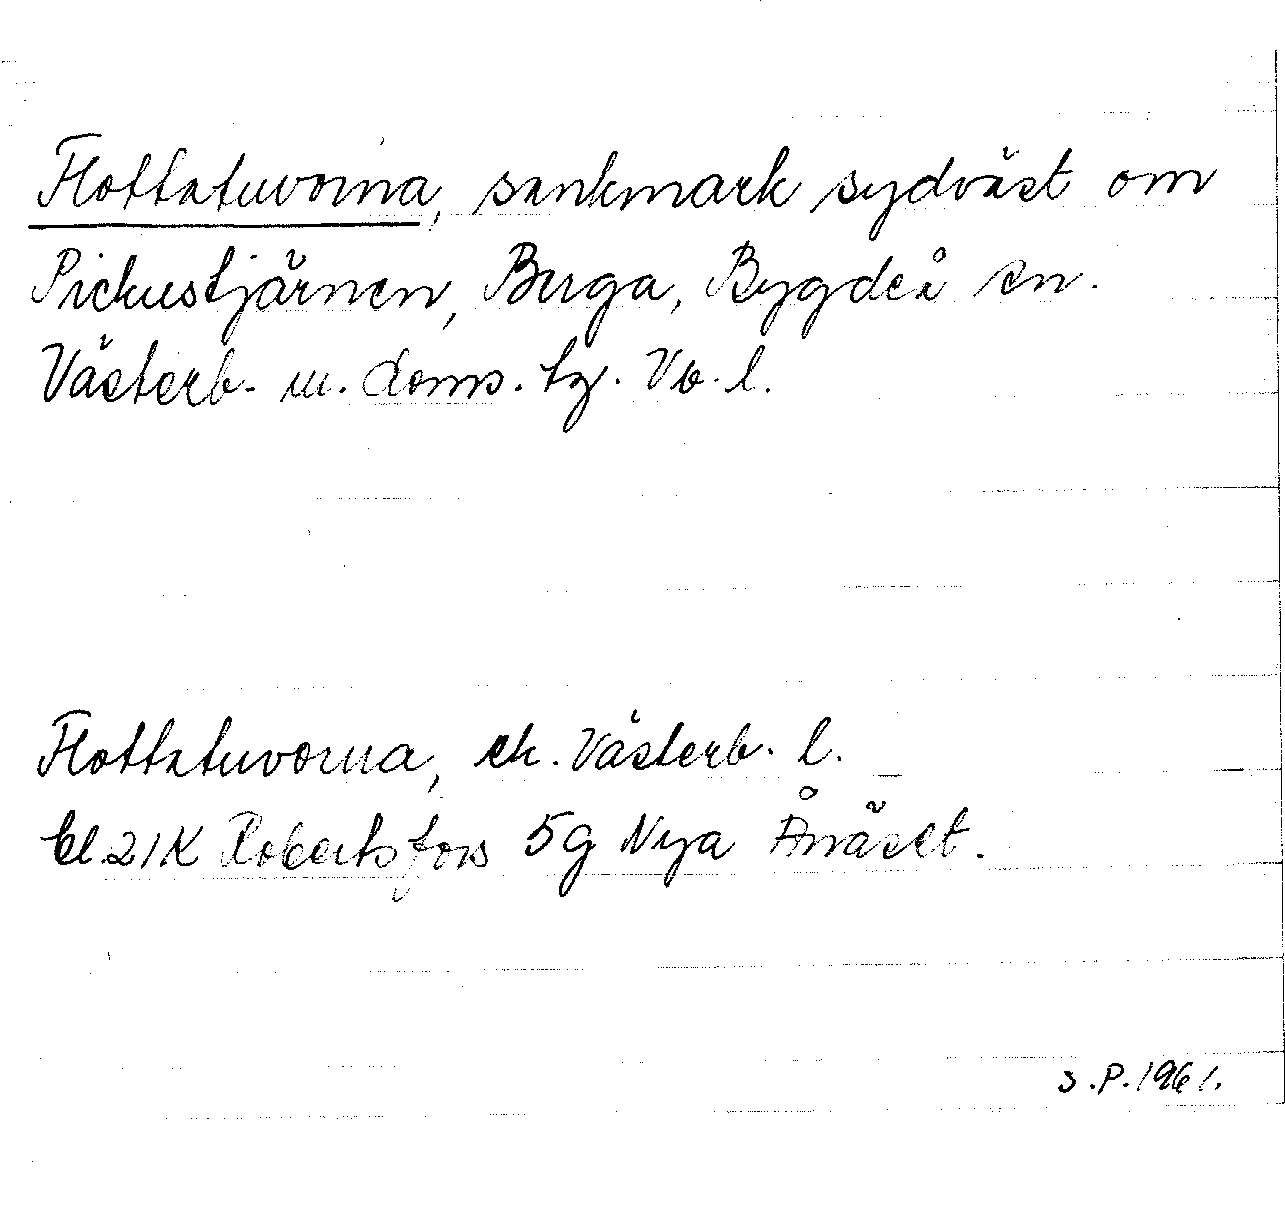 Flottatuvorna, sankmark sydväst om
Pickustjärnen, Berga, Bygdeå sn.
Västerb. m. doms. tg. Vb. l.
Flottatuvorna, ek. Västerb. l.
bl 21K Robertsfors 5g Nya Ånäset.
S.P. 1961.